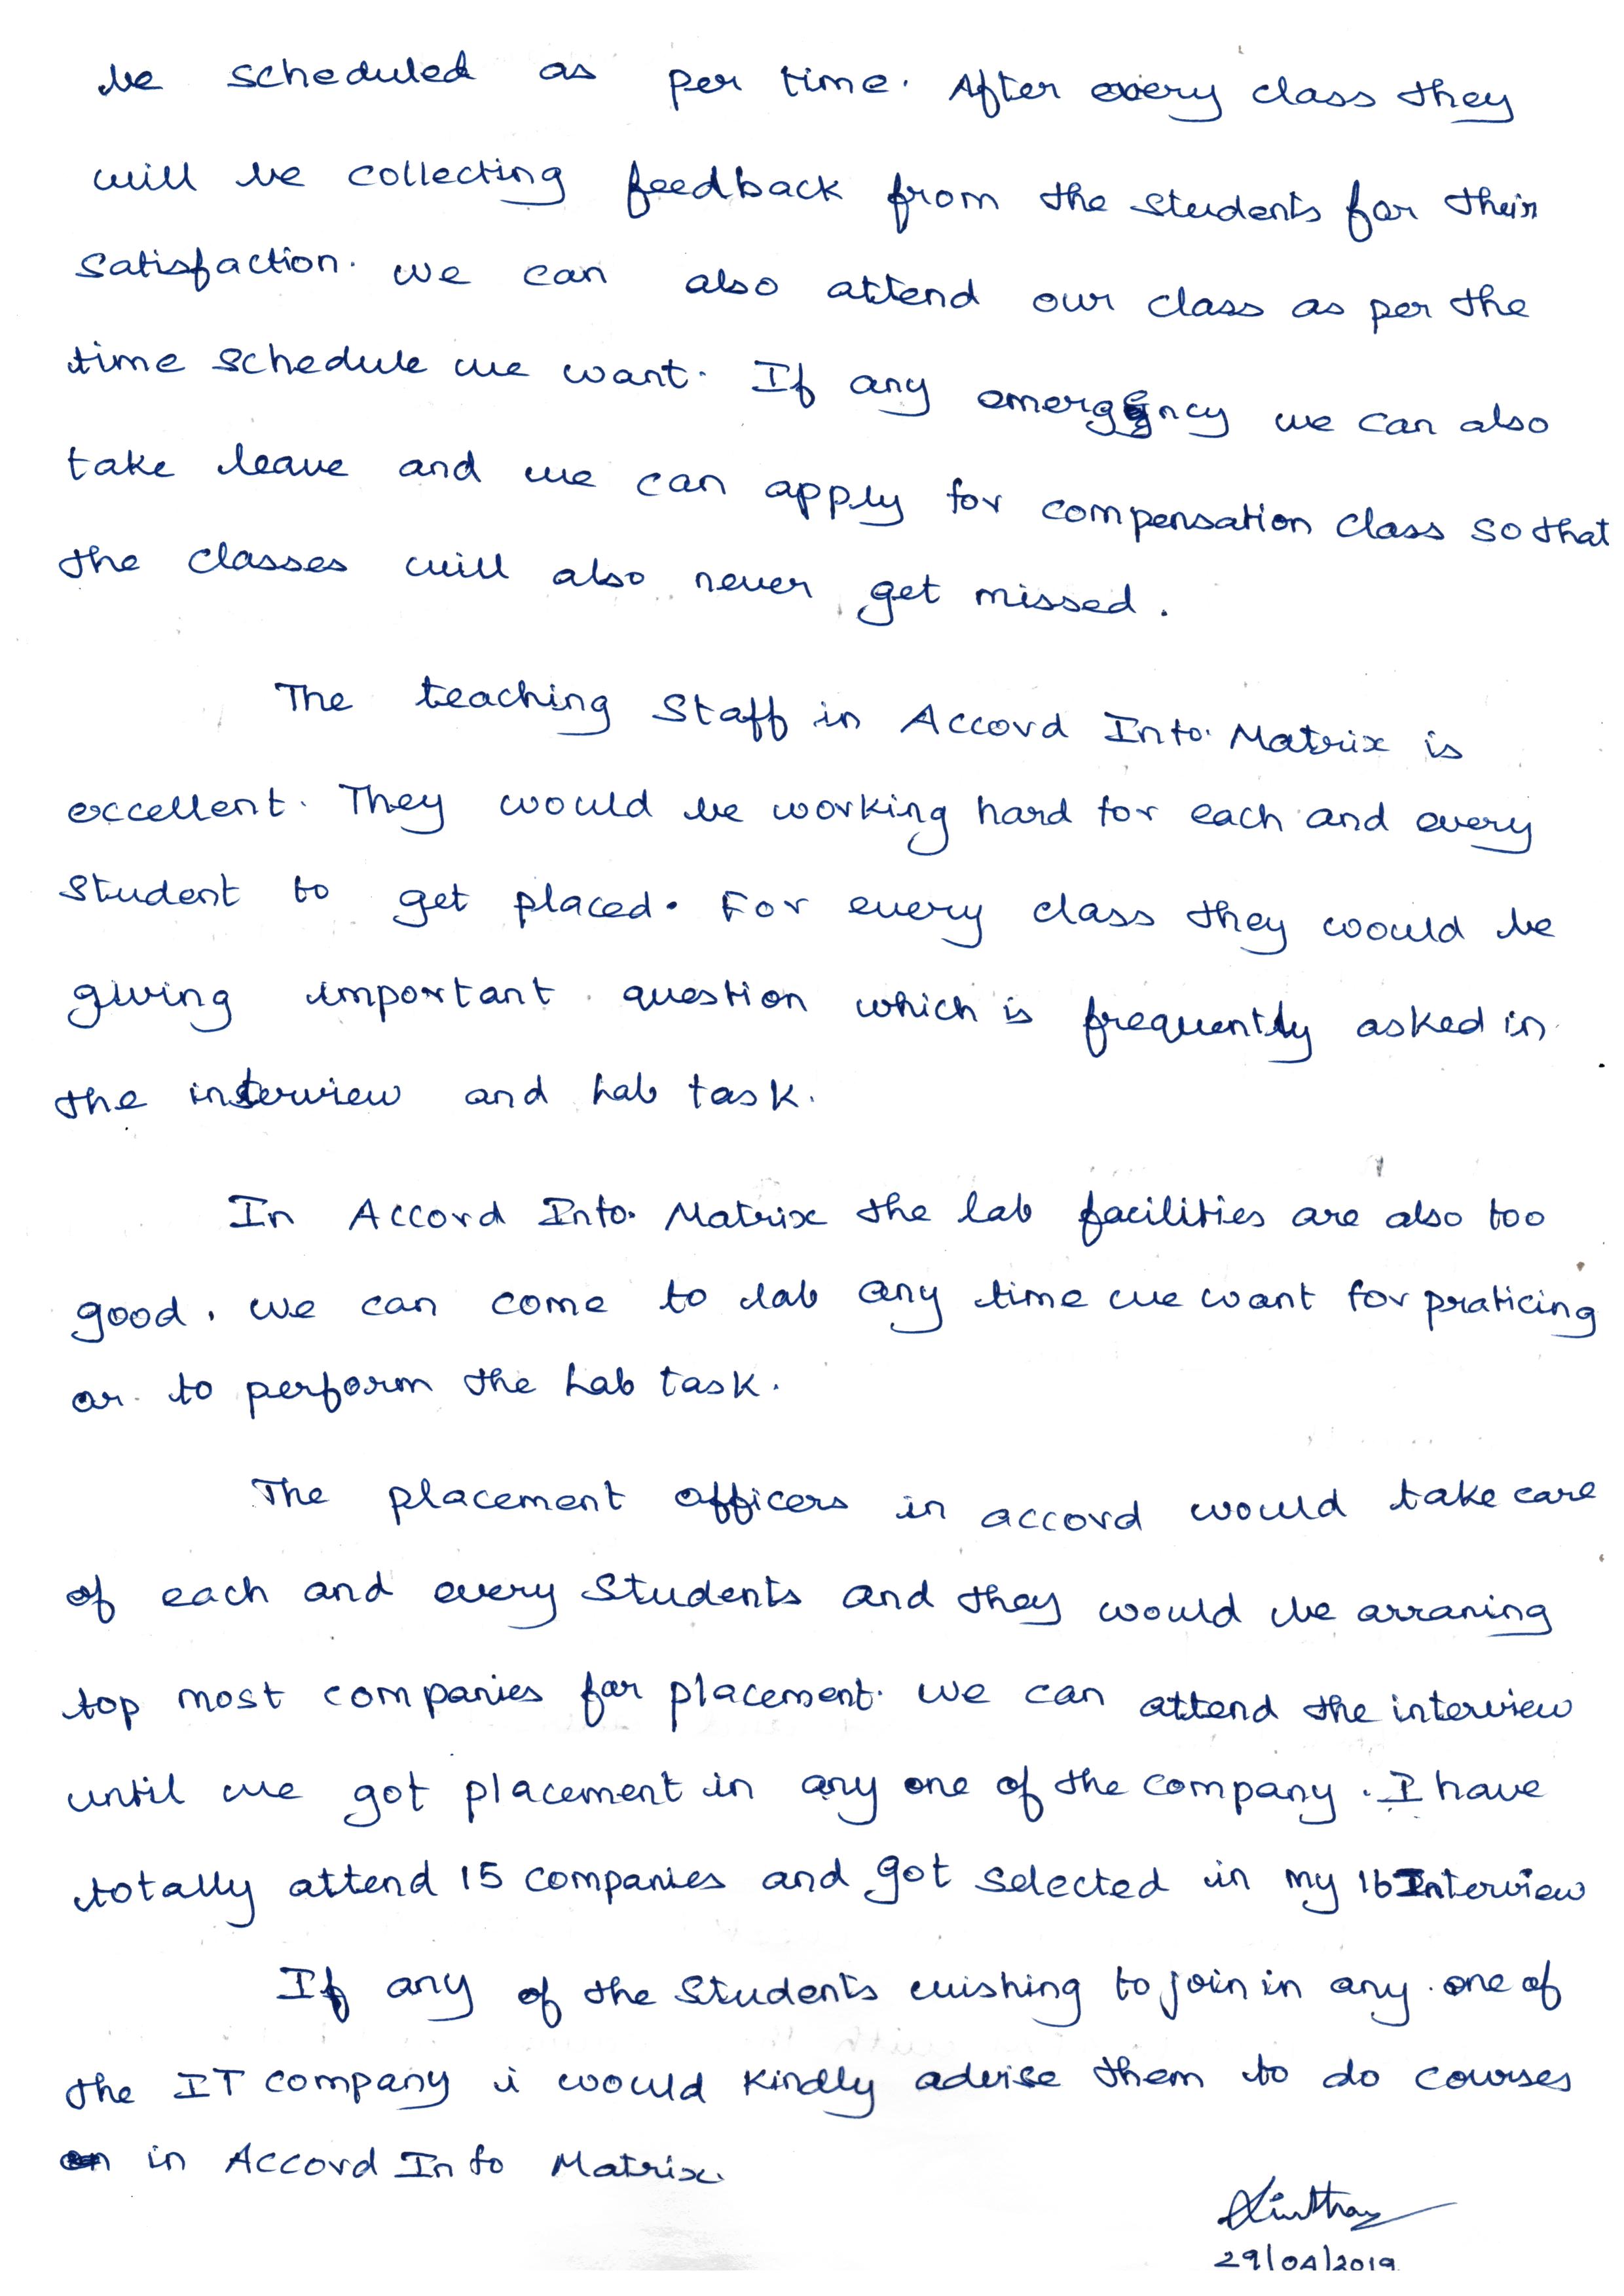 be scheduled as per time. After every class they
will be collecting feedback from the students for their
satisfaction. we can also attend our class as per the
time schedule we want. If any emergency we can also
take leave and we can apply for compensation class so that
the classes will also never get missed.
The teaching Staff in Accord Info. Matrix is
excellent. They would be working hard for each and every
student to get placed. For every class they would be
giving important question which is frequently asked in
the interview and Lab task.
In Accord Info. Matrix the lab facilities are also too
good. we can come to lab any time we want for praticing
or to perform the Lab task.
The placement officers in accord would take care
of each and every Students and they would be arraning
top most companies for placement. we can attend the interview
until we got placement in any one of the company. I have
totally attend 15 companies and got selected in my 16 Interview
If any of the Students wishing to join in any one of
the IT company i would kindly advise them to do courses
in Accord Info Matrix.
29/04/2019